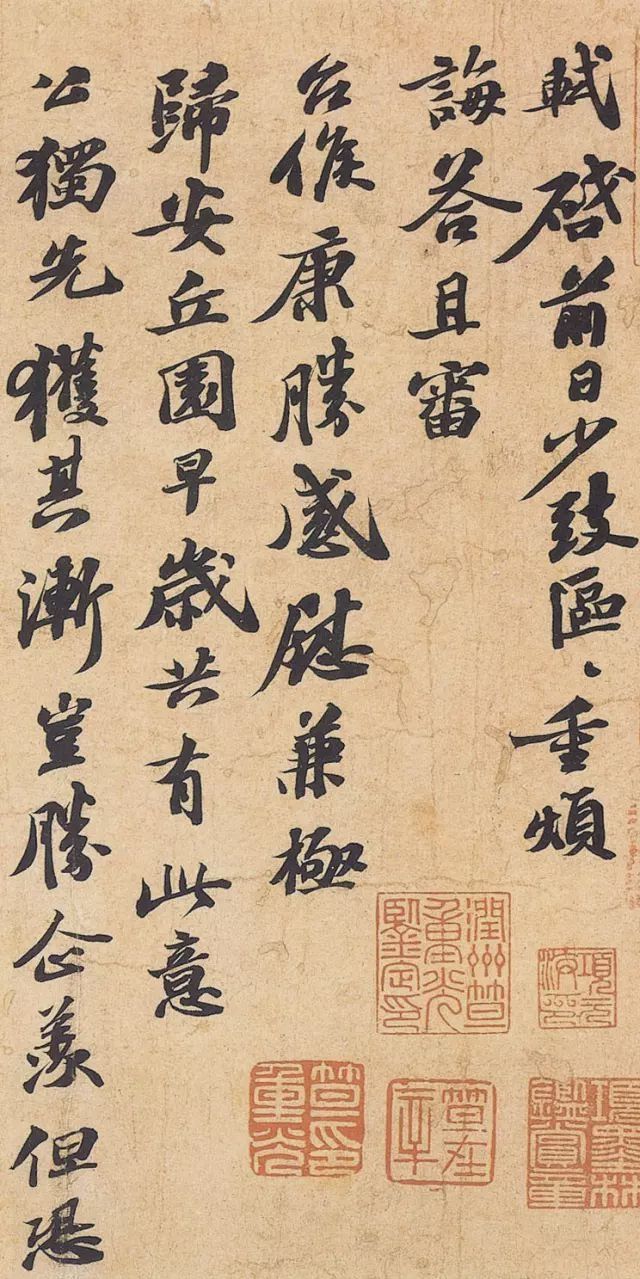 軾啓前日少致區〻重煩
誨答且審
台候康勝感慰兼極
歸安丘園早歲共有此意
公獨先獲其漸豈勝企羨但恐
潤州笪重光鑒定印
項元汴印
項墨林鑑賞章
笪重光印